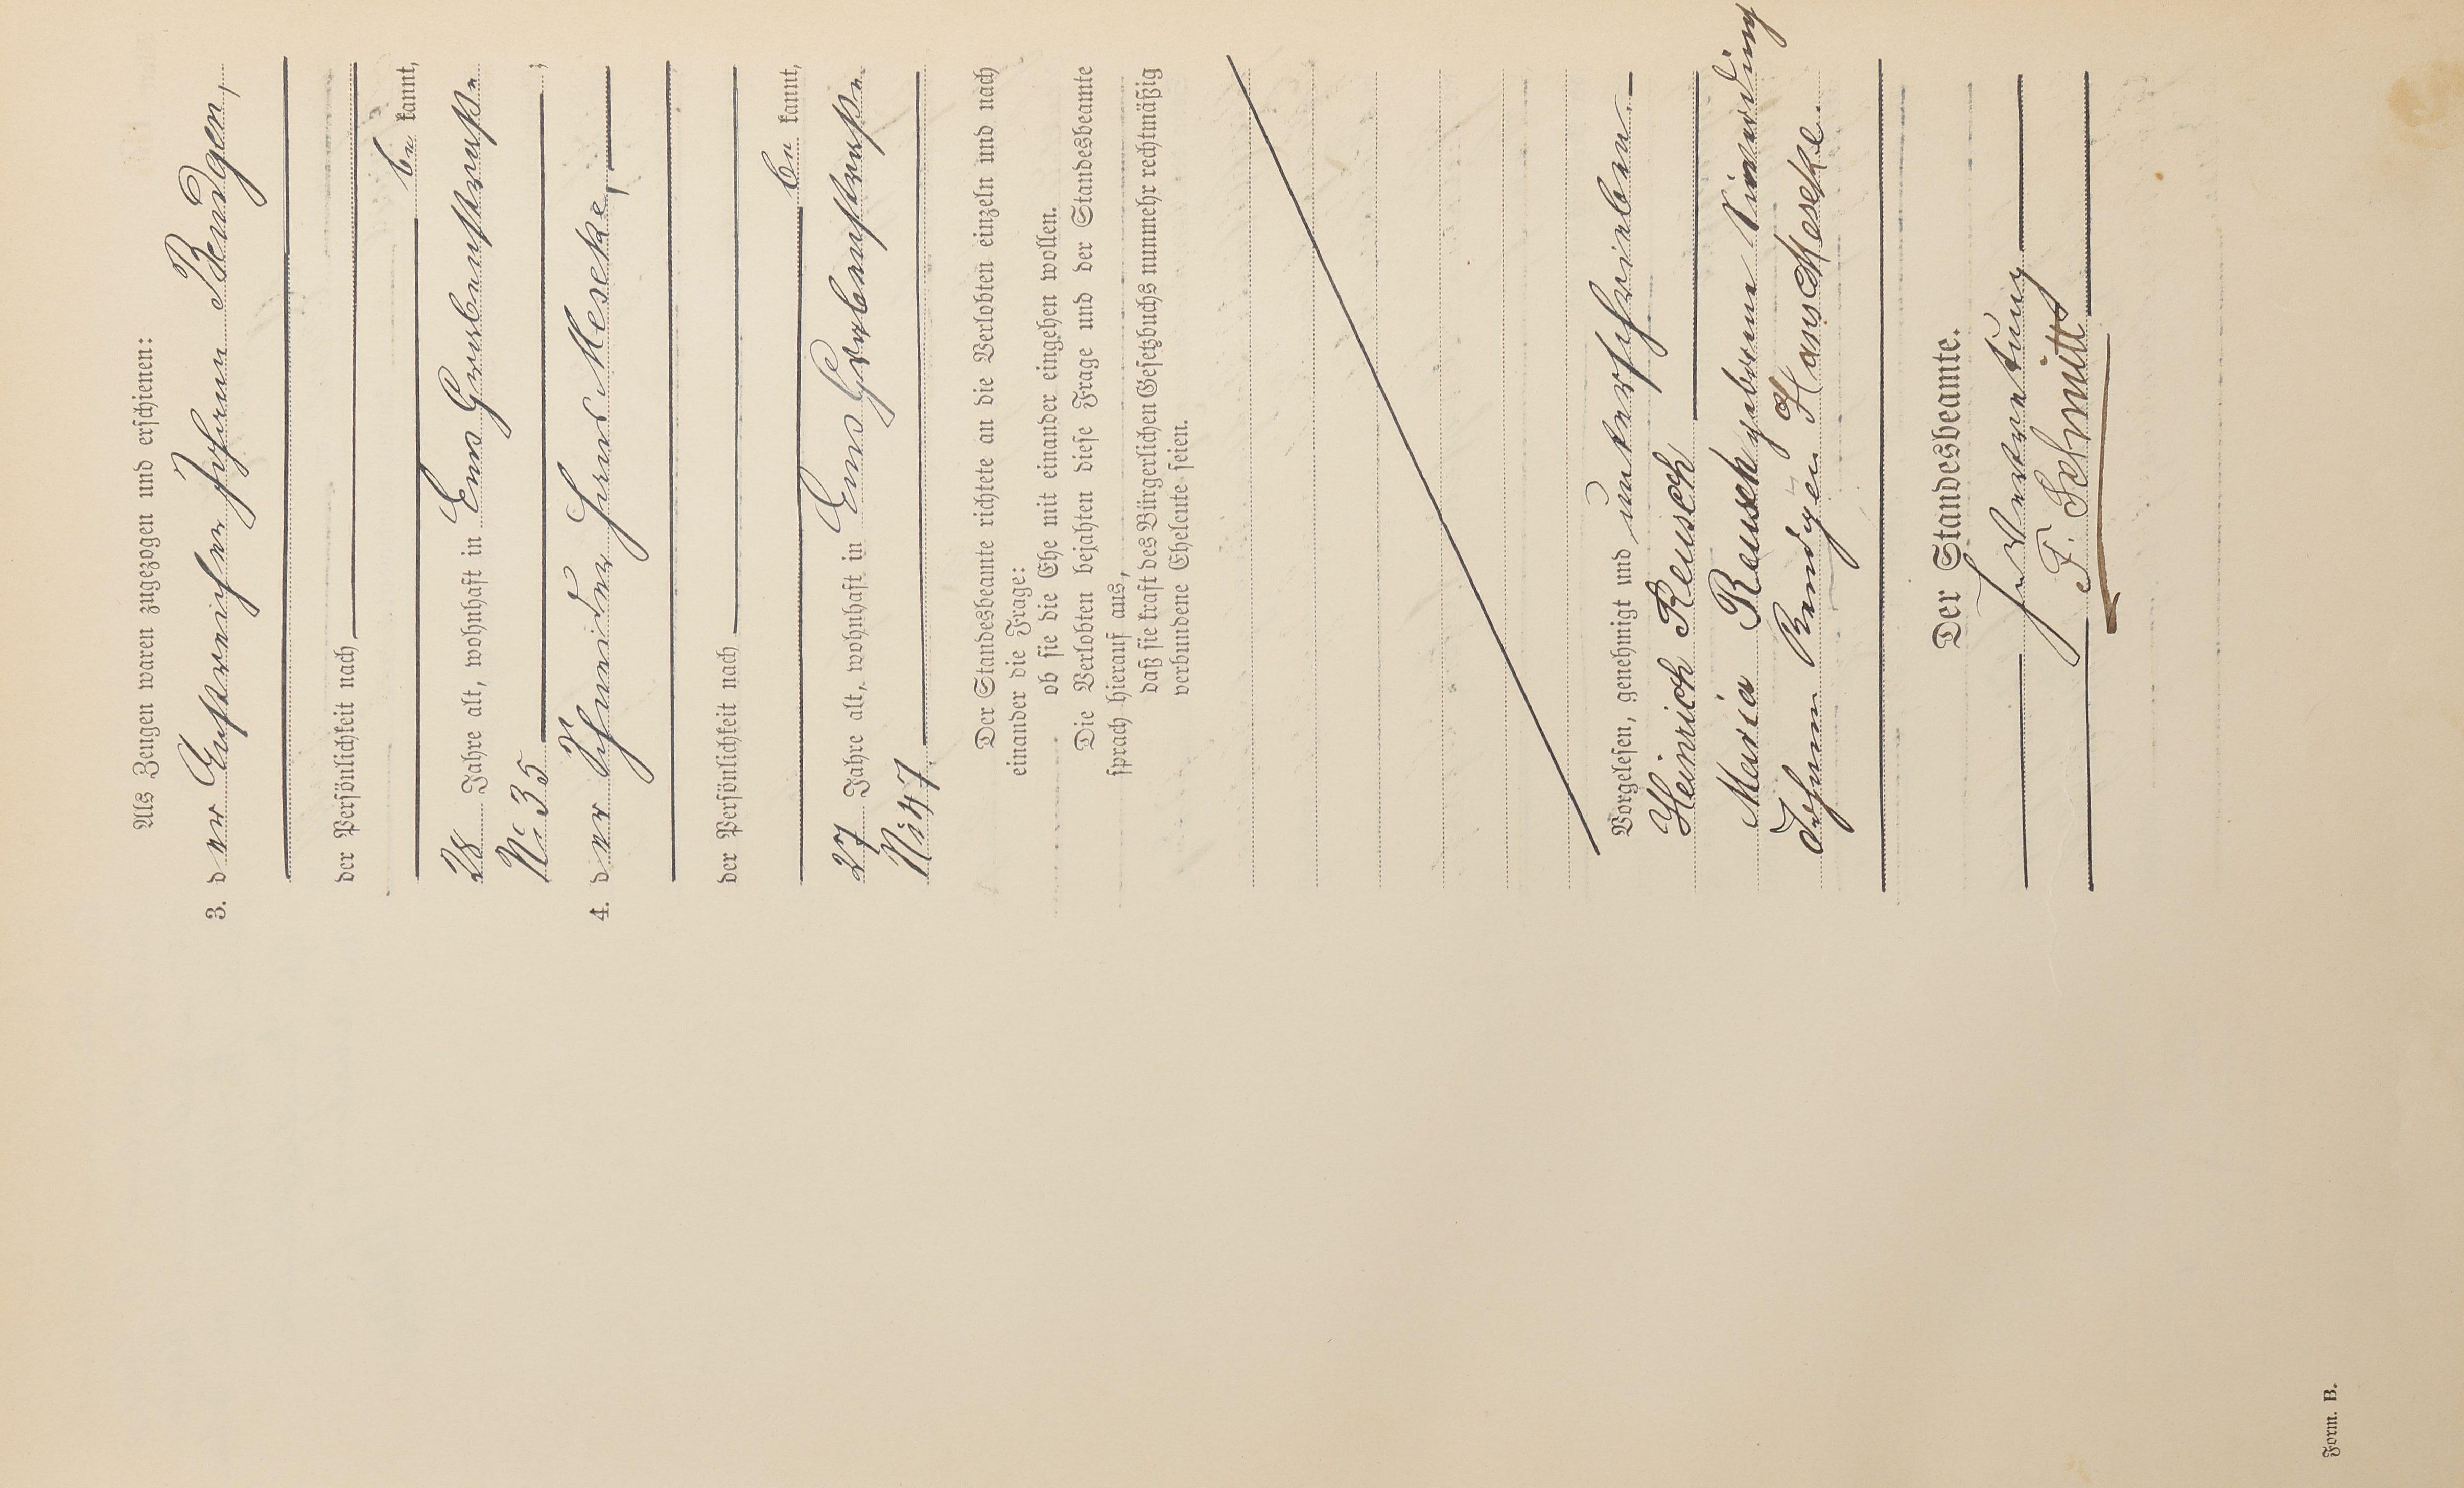 Als Zeugen waren zugezogen und erschienen:
3. der Anstreicher Johann Bendgen,
der Persönlichkeit nach
be kannt,
28 Jahre alt, wohnhaft in Ems Grabenstraße
No 35 ;
4. der Schneider Hans Meseke,
der Persönlichkeit nach
be kannt,
27 Jahre alt, wohnhaft in Ems Grabenstraße
No 47
Der Standesbeamte richtete an die Verlobten einzeln und nach
einander die Frage:
ob sie die Ehe mit einander eingehen wollen.
Die Verlobten bejahten diese Frage und der Standesbeamte
sprach hierauf aus,
daß sie kraft des Bürgerlichen Gesetzbuchs nunmehr rechtmäßig
verbundene Eheleute seien.
Vorgelesen, genehmigt und unterschrieben.
Heinrich Reusch
Maria Reusch geborene
Johann Bendgen Hans Meseke.
Der Standesbeamte.
In Vertretung
F. Schmitt
Form. B.